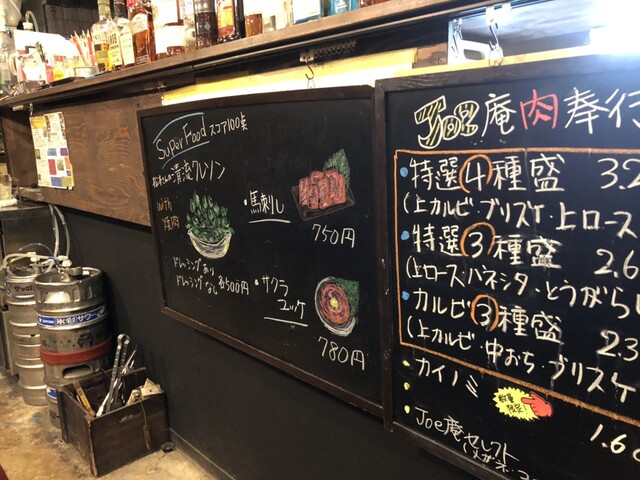 Super Food スコア100点
清流クレソン
with
焼肉
ドレッシングあり
ドレッシングなし 各500円
・馬刺し
750円
・サクラ
ユッケ
780円
Joe庵肉奉行
特選④種盛 3.2
(上カルビ・ブリスケ・上ロース
特選③種盛 2.6
(上ロース・ハネシタ・とうがらし
カルビ③種盛 2.3
(上カルビ・中おち・ブリスケ
・カイノミ 数量限定 1.6
・Joe庵セレクト
氷彩サワー